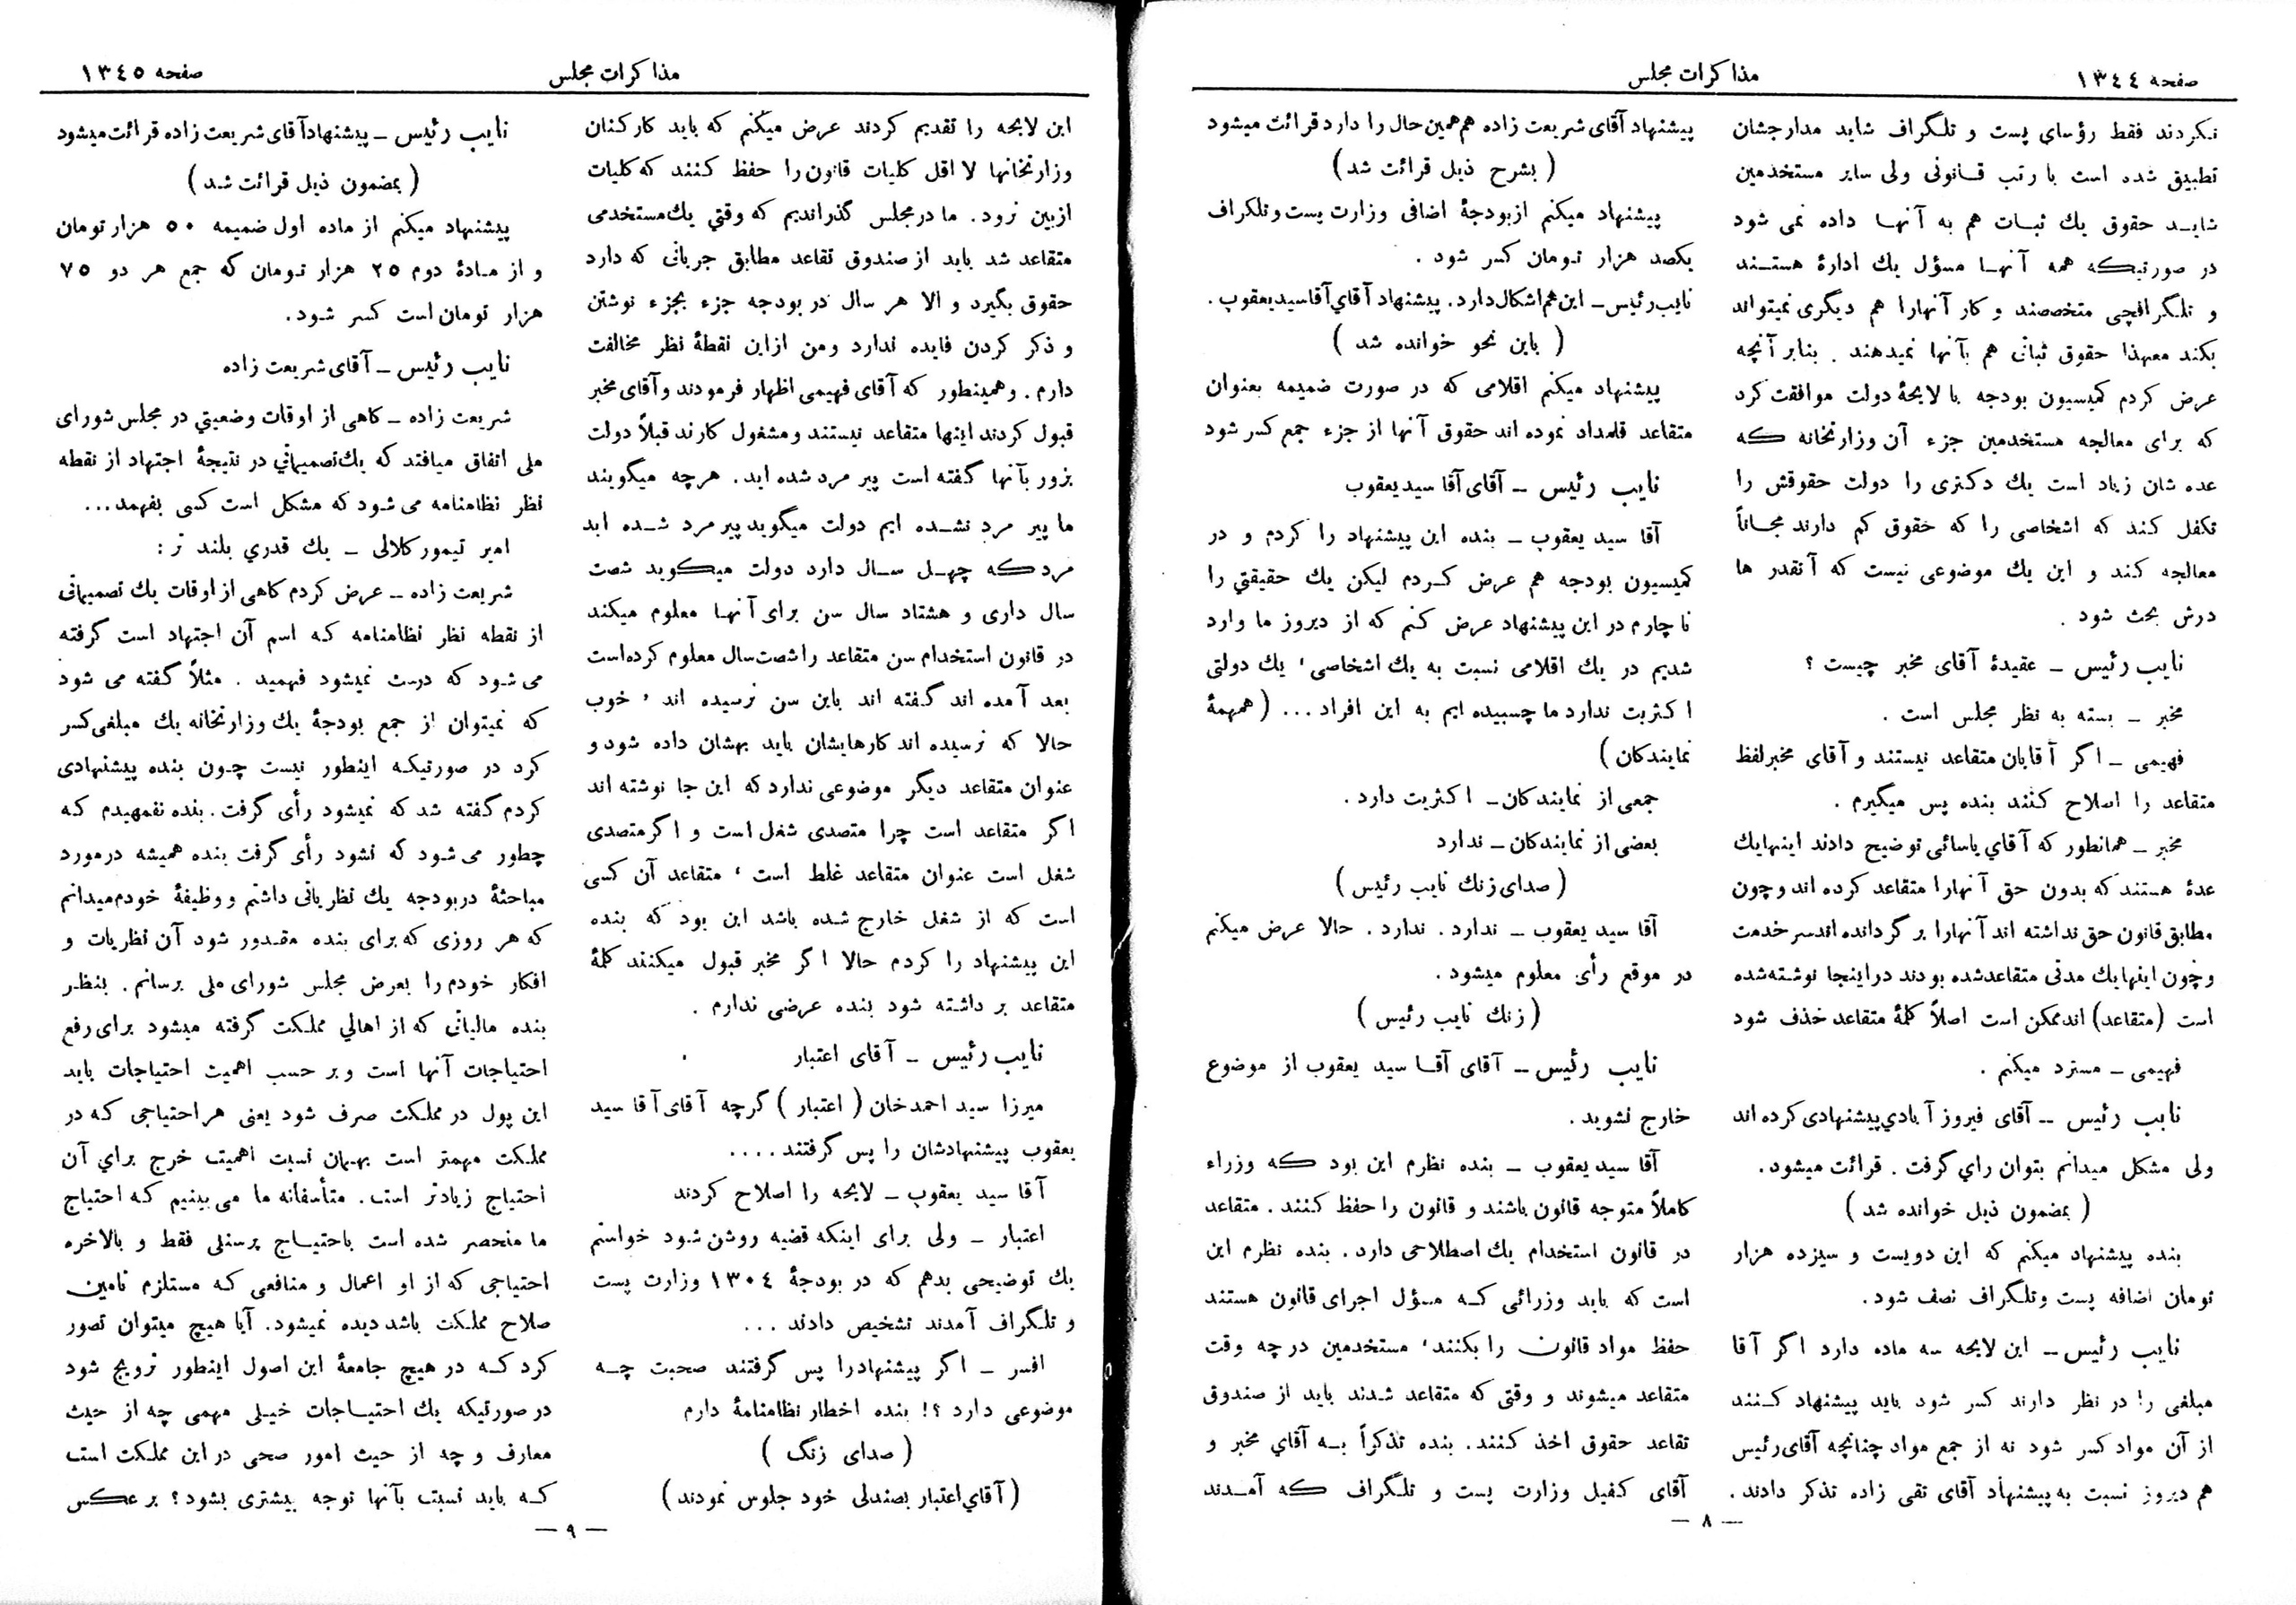 صفحه ۱۳٤٤
مذاکرات مجلس
نکردند فقط رؤسای پست و تلگراف شاید مدارجشان
تطبیق شده است با رتب قانونی ولی سایر مستخدمین
شاید حقوق یك ثبات هم به آنها داده نمی شود
در صورتیکه همه آنها مسؤل یك ادارۀ هستند
و تلگرافچی متخصصند و کار آنهارا هم دیگری نمیتواند
بکند معهذا حقوق ثباتی هم بآنها نمیدهند . بنابر آنچه
عرض کردم کمیسیون بودجه با لایحۀ دولت موافقت کرد
که برای معالجه مستخدمین جزء آن وزارتخانه که
عده شان زیاد است یك دکتری را دولت حقوقش را
تکفل کند که اشخاصی را که حقوق کم دارند مجاناً
معالجه کند و این یك موضوعی نیست که آنقدر ها
درش بحث شود .
نایب رئیس ــ عقیدۀ آقای مخبر چیست ؟
مخبر ــ بسته به نظر مجلس است .
فهیمی ــ اگر آقایان متقاعد نیستند و آقای مخبر لفظ
متقاعد را اصلاح کنند بنده پس میگیرم .
مخبر ــ همانطور که آقای یاسائی توضیح دادند اینهایك
عدۀ هستند که بدون حق آنهارا متقاعد کرده اند و چون
مطابق قانون حق نداشته اند آنهارا بر گردانده اندسر خدمت
و چون اینهایك مدتی متقاعدشده بودند دراینجا نوشته شده
است (متقاعد) اندممکن است اصلاً کلمۀ متقاعد حذف شود
فهیمی ــ مسترد میکنم .
نایب رئیس ــ آقای فیروز آبادی پیشنهادی کرده اند
ولی مشکل میدانم بتوان رای گرفت . قرائت میشود.
( بمضمون ذیل خوانده شد )
بنده پیشنهاد میکنم که این دویست و سیزده هزار
تومان اضافه پست وتلگراف نصف شود.
نایب رئیس ــ این لایحه سه ماده دارد اگر آقا
مبلغی را در نظر دارند کسر شود باید پیشنهاد کنند
از آن مواد کسر شود نه از جمع مواد چنانچه آقای رئیس
هم دیروز نسبت به پیشنهاد آقای تقی زاده تذکر دادند .
پیشنهاد آقای شریعت زاده هم همین حال را دارد قرائت میشود
( بشرح ذیل قرائت شد )
پیشنهاد میکنم از بودجۀ اضافی وزارت پست و تلگراف
یکصد هزار تومان کسر شود .
نایب رئیس ــ این هم اشکال دارد. پیشنهاد آقای آقاسید یعقوب .
( باین نحو خوانده شد )
پیشنهاد میکنم اقلامی که در صورت ضمیمه بعنوان
متقاعد قلمداد نموده اند حقوق آنها از جزء جمع کسر شود
نایب رئیس ــ آقای آقا سید یعقوب
آقا سید یعقوب ــ بنده این پیشنهاد را کردم و در
کمیسیون بودجه هم عرض کردم لیکن یك حقیقتی را
ناچارم در این پیشنهاد عرض کنم که از دیروز ما وارد
شدیم در یك اقلامی نسبت به یك اشخاصی ، یك دولتی
اکثریت ندارد ما چسبیده ایم به این افراد ... ( همهمۀ
نمایندکان )
جمعی از نمایندکان ــ اکثریت دارد .
بعضی از نمایندکان ــ ندارد
( صدای زنك نایب رئیس )
آقا سید یعقوب ــ ندارد . ندارد . حالا عرض میکنم
در موقع رأی معلوم میشود .
( زنك نایب رئیس )
نایب رئیس ــ آقای آقا سید یعقوب از موضوع
خارج نشوید .
آقا سید یعقوب ــ بنده نظرم این بود که وزراء
کاملاً متوجه قانون باشند و قانون را حفظ کنند . متقاعد
در قانون استخدام یك اصطلاحی دارد . بنده نظرم این
است که باید وزرائی که مسؤل اجرای قانون هستند
حفظ مواد قانون را بکنند، مستخدمین در چه وقت
متقاعد میشوند و وقتی که متقاعد شدند باید از صندوق
تقاعد حقوق اخذ کنند . بنده تذکراً به آقای مخبر و
آقای کفیل وزارت پست و تلگراف که آمدند
ــ ۸ ــ
مذاکرات مجلس
صفحه ۱۳٤٥
این لایحه را تقدیم کردند عرض میکنم که باید کارکنان
وزارتخانها لا اقل کلیات قانون را حفظ کنند که کلیات
از بین نرود. ما در مجلس گذراندیم که وقتی یك مستخدمی
متقاعد شد باید از صندوق تقاعد مطابق جریانی که دارد
حقوق بگیرد و الا هر سال در بودجه جزء بجزء نوشتن
و ذکر کردن فایده ندارد و من از این نقطۀ نظر مخالفت
دارم . و همینطور که آقای فهیمی اظهار فرمودند و آقای مخبر
قبول کردند اینها متقاعد نیستند و مشغول کارند قبلاً دولت
بزور بآنها گفته است پیر مرد شده اید . هرچه میگویند
ما پیر مرد نشده ایم دولت میگوید پیر مرد شده اید
مرد که چهل سال دارد دولت میگوید شصت
سال داری و هشتاد سال سن برای آنها معلوم میکند
در قانون استخدام سن متقاعد را شصت سال معلوم کرده است
بعد آمده اند گفته اند باین سن نرسیده اند ، خوب
حالا که نرسیده اند کارهایشان باید بهشان داده شود و
عنوان متقاعد دیگر موضوعی ندارد که این جا نوشته اند
اگر متقاعد است چرا متصدی شغل است و اگر متصدی
شغل است عنوان متقاعد غلط است ، متقاعد آن کسی
است که از شغل خارج شده باشد این بود که بنده
این پیشنهاد را کردم حالا اگر مخبر قبول میکنند کلمۀ
متقاعد بر داشته شود بنده عرضی ندارم .
نایب رئیس ــ آقای اعتبار
میرزا سید احمدخان ( اعتبار ) گرچه آقای آقا سید
یعقوب پیشنهادشان را پس گرفتند ....
آقا سید یعقوب ــ لایحه را اصلاح کردند
اعتبار ــ ولی برای اینکه قضیه روشن شود خواستم
یك توضیحی بدهم که در بودجۀ ۱۳۰٤ وزارت پست
و تلگراف آمدند تشخیص دادند ...
افسر ــ اگر پیشنهادرا پس گرفتند صحبت چه
موضوعی دارد ؟! بنده اخطار نظامنامۀ دارم
( صدای زنگ )
( آقای اعتبار بصندلی خود جلوس نمودند )
نایب رئیس ــ پیشنهاد آقای شریعت زاده قرائت میشود
( بمضمون ذیل قرائت شد )
پیشنهاد میکنم از ماده اول ضمیمه ۵۰ هزار تومان
و از مادۀ دوم ۲۵ هزار تومان که جمع هر دو ۷۵
هزار تومان است کسر شود.
نایب رئیس ــ آقای شریعت زاده
شریعت زاده ــ کاهی از اوقات وضعیتی در مجلس شورای
ملی اتفاق میافتد که یك تصمیماتی در نتیجۀ اجتهاد از نقطه
نظر نظامنامه می شود که مشکل است کسی بفهمد...
امیر تیمور کلالی ــ یك قدری بلند تر :
شریعت زاده ــ عرض کردم کاهی از اوقات یك تصمیماتی
از نقطه نظر نظامنامه که اسم آن اجتهاد است گرفته
می شود که درست نمیشود فهمید . مثلاً گفته می شود
که نمیتوان از جمع بودجۀ یك وزارتخانه یك مبلغی کسر
کرد در صورتیکه اینطور نیست چون بنده پیشنهادی
کردم گفته شد که نمیشود رأی گرفت . بنده نفمهیدم که
چطور می شود که نشود رأی گرفت بنده همیشه در مورد
مباحثۀ در بودجه یك نظریاتی داشتم و وظیفۀ خودم میدانم
که هر روزی که برای بنده مقدور شود آن نظریات و
افکار خودم را بعرض مجلس شورای ملی برسانم . بنظر
بنده مالیاتی که از اهالی مملکت گرفته میشود برای رفع
احتیاجات آنها است و بر حسب اهمیت احتیاجات باید
این پول در مملکت صرف شود یعنی هر احتیاجی که در
مملکت مهمتر است بهمان نسبت اهمیت خرج برای آن
احتیاج زیادتر است . متأسفانه ما می بینیم که احتیاج
ما منحصر شده است باحتیاج پرسنلی فقط و بالاخره
احتیاجی که از او اعمال و منافعی که مستلزم تامین
صلاح مملکت باشد دیده نمیشود. آیا هیچ میتوان تصور
کرد که در هیچ جامعۀ این اصول اینطور ترویج شود
در صورتیکه یك احتیاجات خیلی مهمی چه از حیث
معارف و چه از حیث امور صحی در این مملکت است
که باید نسبت بآنها توجه بیشتری بشود ؟ برعکس
ــ ۹ ــ